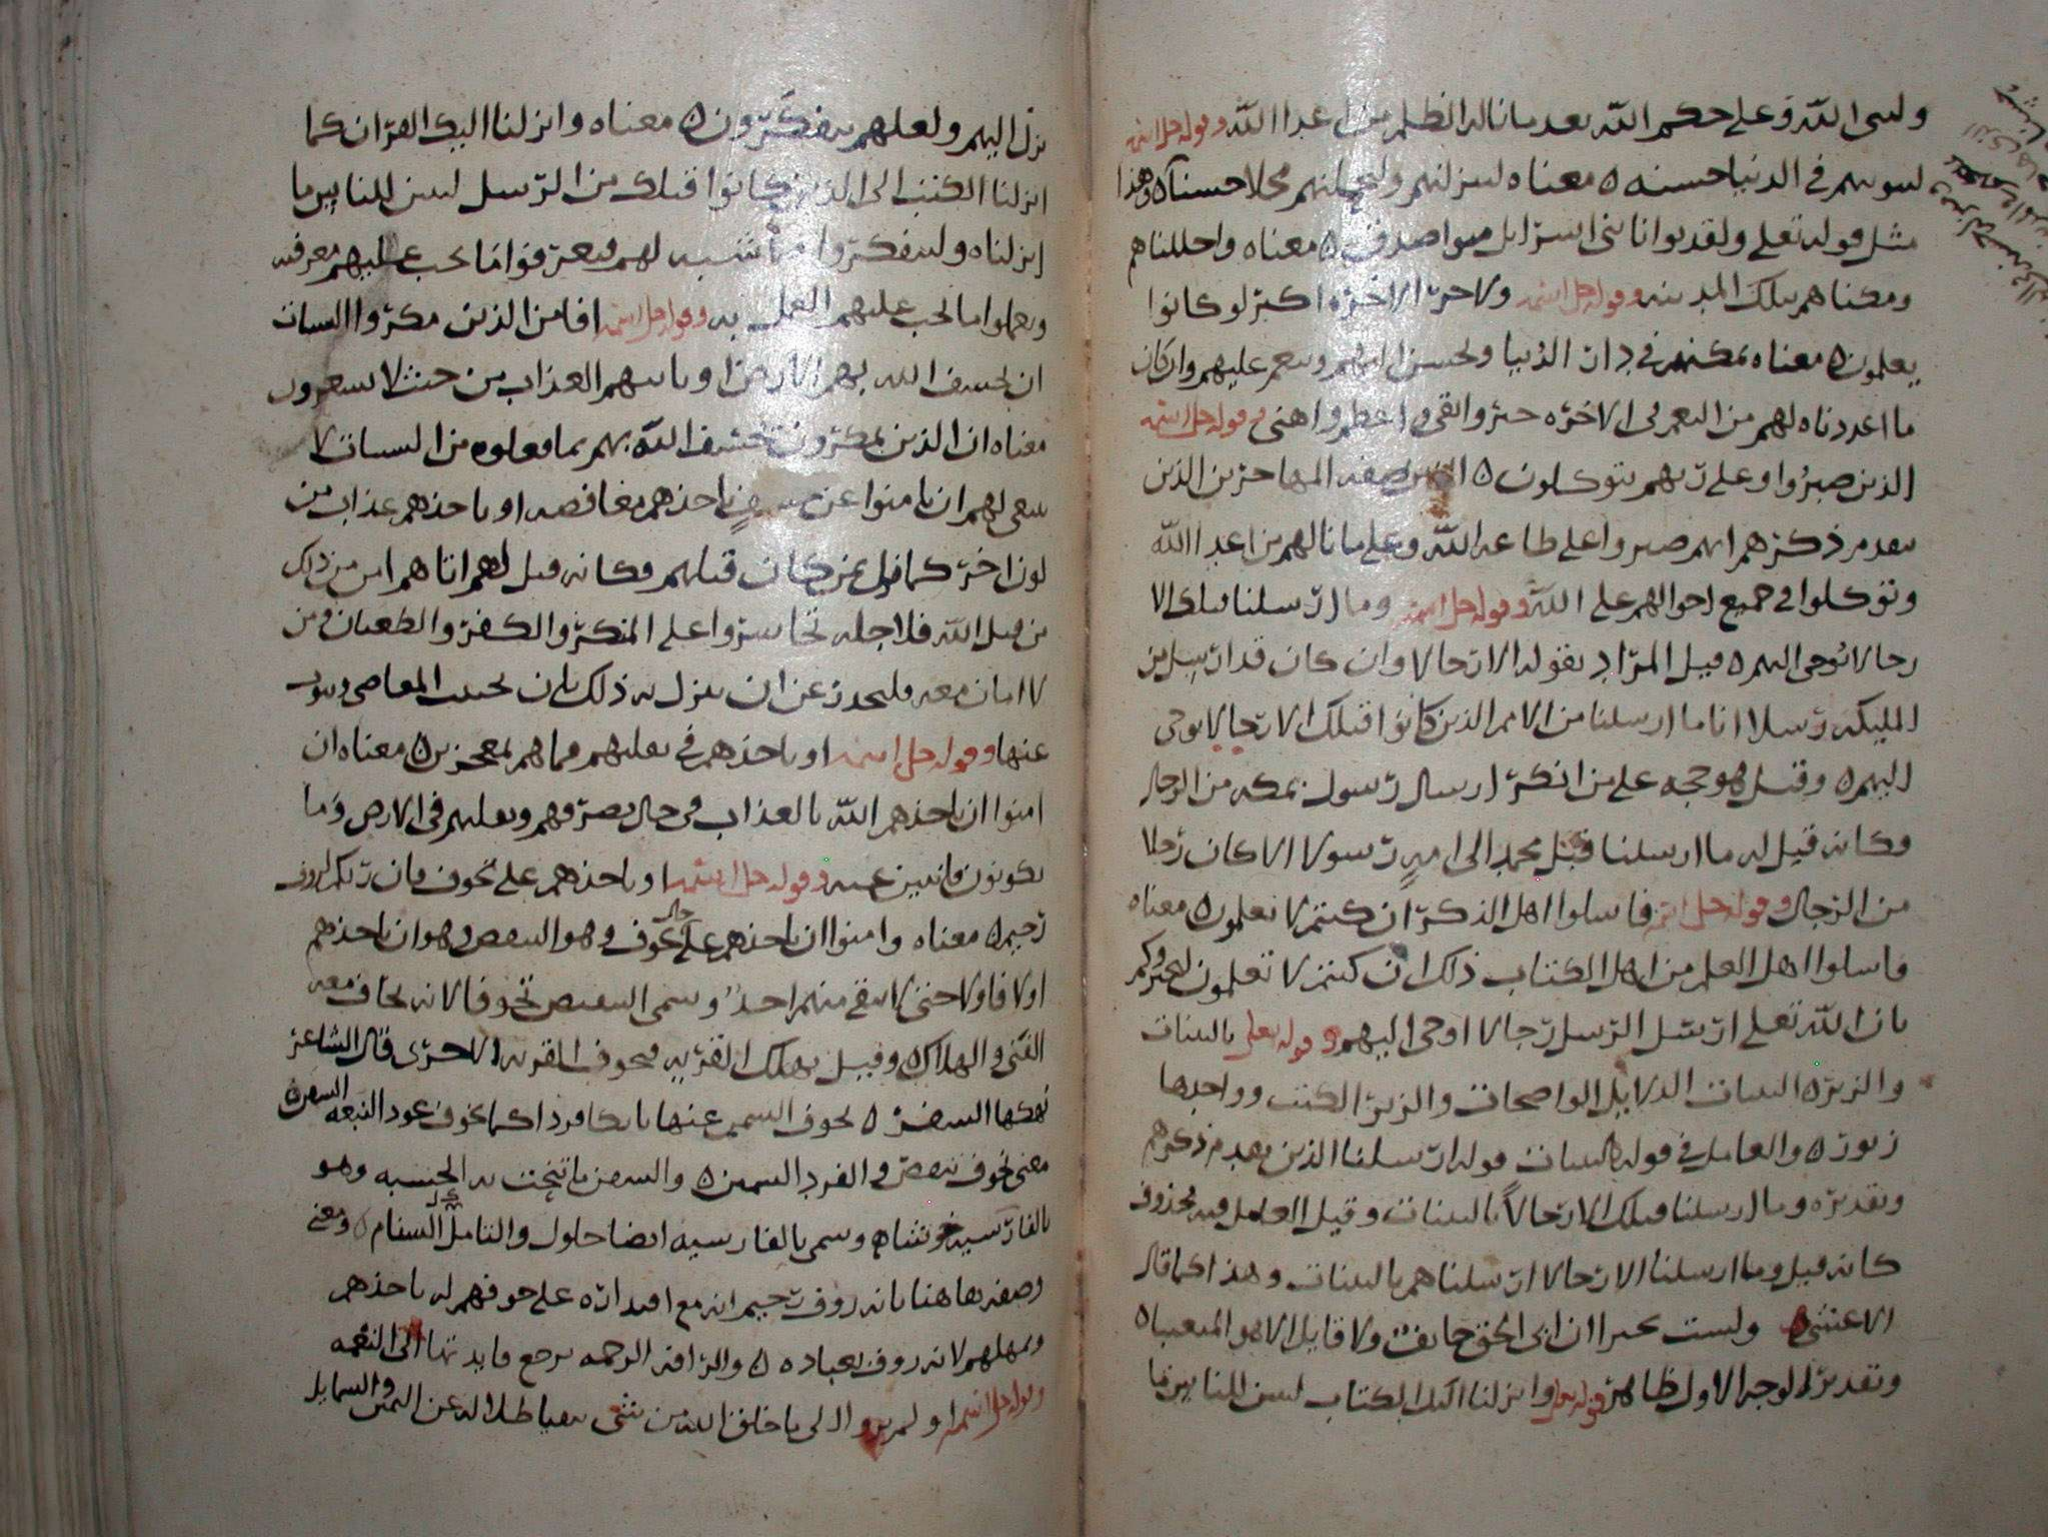 ولنبي الله وعلى حكم الله بعد ما ناله الظلم من اعدا الله وقوله جل اسمه
لنبوينهم في الدنيا حسنه ه معناه لننزلنهم ولنحلنهم محلا حسنا ه وهذا
مثل قوله تعلى ولقد بوانا بني اسرايل مبوا صدق ه معناه واحللناهم
ومكناهم بتلك المدينه وقوله جل اسمه ولاجر الاخره اكبر لو كانوا
يعلمون ه معناه نمكنهم في دار الدنيا ونحسن اليهم وننعم عليهم وان كان
ما اعددناه لهم من النعم في الاخره خير وابقى واعظم واهنى وقوله جل اسمه
الذين صبروا وعلى ربهم يتوكلون ه صفه المهاجرين الذين
تقدم ذكرهم انهم صبروا على طاعه الله وعلى ما نالهم من اعدا الله
وتوكلوا في جميع احوالهم على الله وقوله جل اسمه وما ارسلنا قبلك الا
رجالا نوحي اليهم ه قيل المراد بقوله الا رجالا وان كان قد ارسل من
المليكه رسلا انا ما ارسلنا من الامم الذين كانوا قبلك الا رجالا يوحى
اليهم ه وقيل هو حجه على من انكر ارسال رسول بمكه من الرجال
وكانه قيل له ما ارسلنا قبل محمد الى امه رسولا الا كان رجلا
من الرجال وقوله جل اسمه فاسلوا اهل الذكر ان كنتم لا تعلمون ه معناه
فاسلوا اهل العلم من اهل الكتاب ذلك ان كنتم لا تعلمون ليخبروكم
بان الله تعلى ارسل الرسل رجالا اوحى اليهم وقوله تعلى بالبينات
والزبر ه البينات الدلايل الواضحات والزبر الكتب وواحدها
زبور ه والعامل في قوله بالبينات قوله ارسلنا الذي تقدم ذكرهم
وتقديره وما ارسلنا قبلك الا رجالا بالبينات وقيل العامل فيه محذوف
كانه قيل وما ارسلنا الا رجالا ارسلناهم بالبينات وهذا كما قال
الاعشى ه وليست مجيرا ان اتى الحق خايف ولا قايل الا هو المتعيبا ه
وتقدير الوجه الاول ظاهر قوله تعلى وانزلنا اليك الكتاب لتبين للناس ما
نزل اليهم ولعلهم يتفكرون ه معناه وانزلنا اليك القران كما
انزلنا الكتب الى الذين كانوا قبلك من الرسل لتبين للناس ما
انزلناه وليتفكروا لهم فيعرفوا ما يجب عليهم معرفته
ويعملوا ما يجب عليهم العمل به وقوله جل اسمه افامن الذين مكروا السيات
ان يخسف الله بهم الارض او ياتيهم العذاب من حيث لا يشعرون
معناه ان الذين يمكرون بخسف الله بهم بما فعلوه من السيات لا
ينبغي لهم ان يامنوا ياخذهم مغافصه او ياخذهم عذاب من
لون اخر كما نزل بمن كان قبلهم وكانه قيل لهم اتاهم امن من ذلك
من قبل الله فلاجله تجاسروا على المنكر والكفر والطغيان ومن
لا امان معه فليحذر عن ان ينزل به ذلك بان يجتنب المعاصي ويتوب
عنها وقوله جل اسمه او ياخذهم في تقلبهم فما هم بمعجزين ه معناه ان
امنوا ان ياخذهم الله بالعذاب في حال تصرفهم وتقلبهم في الارض وما
يكونون فايتين عنه وقوله جل اسمه او ياخذهم على تخوف فان ربكم لروف
رحيم ه معناه وامنوا ان ياخذهم على حال تخوف وهو التنقص وهو ان ياخذهم
اولا فاولا حتى لا يبقى منهم احد وسمي التنقص تخوفا لانه يخاف معه
الفنى والهلاك ه وقيل يهلك القريه فيخوف القريه الاخرى قال الشاعر
نهكها السفر ه تخوف السير عنها تامكا قردا كما تخوف عود النبعه السفن ه
معنى تخوف تنقص والقرد السمين ه والسفن ما تنحت به الخشبه وهو
بالفارسيه وسمي بالفارسيه ايضا حلول والتامك السنام ه ومعنى
وصفه هاهنا بانه روف رحيم انه مع اقتداره على خوفهم لم ياخذهم
ويمهلهم لانه روف بعباده ه والرافه الرحمه يرجع فايدتها الى النعمه
وقوله جل اسمه اولم يروا الى ما خلق الله من شى يتفيا ظلاله عن اليمين والشمايل